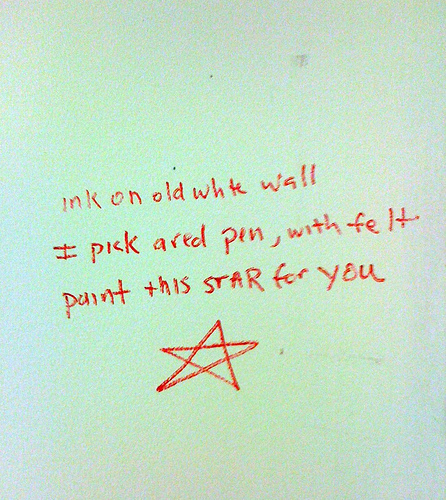 ink on old white wall
I pick a red pen, with felt
paint this STAR for YOU